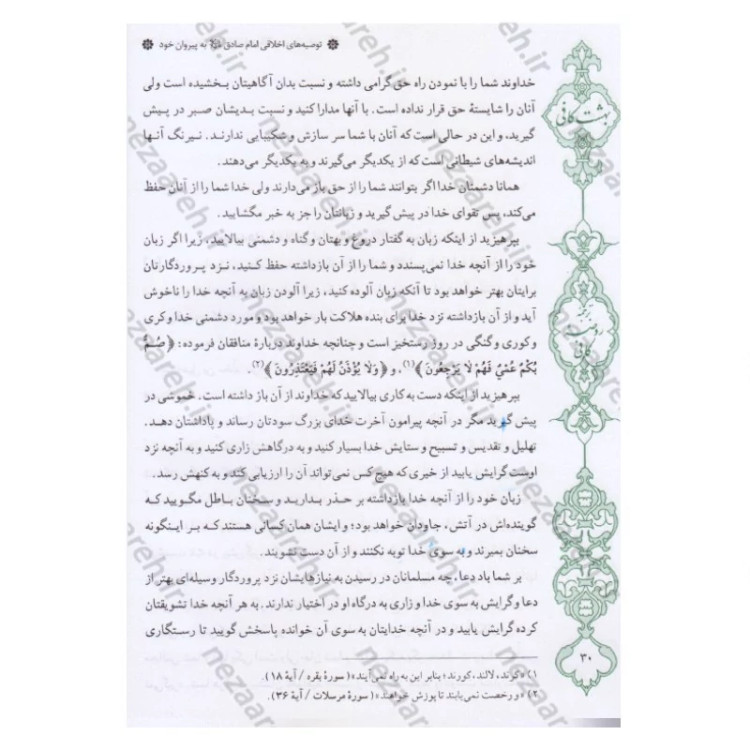 توصیه‌های اخلاقی امام صادق به پیروان خود
خداوند شما را با نمودن راه حق گرامی داشته و نسبت بدان آگاهیتان بخشیده است ولی
آنان را شایستهٔ حق قرار نداده است. با آنها مدارا کنید و نسبت بدیشان صبر در پیش
گیرید، و این در حالی است که آنان با شما سر سازش و شکیبایی ندارند. نیرنگ آنها
اندیشه‌های شیطانی است که از یکدیگر می‌گیرند و به یکدیگر می‌دهند.
همانا دشمنان خدا اگر بتوانند شما را از حق باز می‌دارند ولی خدا شما را از آنان حفظ
می‌کند، پس تقوای خدا در پیش گیرید و زبانتان را جز به خیر مگشایید.
بپرهیزید از اینکه زبان به گفتار دروغ و بهتان و گناه و دشمنی بیالایید، زیرا اگر زبان
خود را از آنچه خدا نمی‌پسندد و شما را از آن بازداشته حفظ کنید، نزد پروردگارتان
برایتان بهتر خواهد بود تا آنکه زبان آلوده کنید، زیرا آلودن زبان به آنچه خدا را ناخوش
آید و از آن بازداشته نزد خدا برای بنده هلاکت بار خواهد بود و مورد دشمنی خدا و کری
و کوری و گنگی در روز رستخیز است و چنانچه خداوند دربارهٔ منافقان فرموده: ﴿صُمٌّ
بُكْمٌ عُمْيٌ فَهُمْ لَا يَرْجِعُونَ﴾(۱)، و ﴿وَلَا يُؤْذَنُ لَهُمْ فَيَعْتَذِرُونَ﴾(۲).
بپرهیزید از اینکه دست به کاری بیالایید که خداوند از آن باز داشته است. خموشی در
پیش گیرید مگر در آنچه پیرامون آخرت خدای بزرگ سودتان رساند و پاداشتان دهد.
تهلیل و تقدیس و تسبیح و ستایش خدا بسیار کنید و به درگاهش زاری کنید و به آنچه نزد
اوست گرایش یابید از خیری که هیچ کس نمی‌تواند آن را ارزیابی کند و به کنهش رسد.
زبان خود را از آنچه خدا بازداشته بر حذر بدارید و سخنان باطل مگویید که
گوینده‌اش در آتش، جاودان خواهد بود؛ و ایشان همان کسانی هستند که بر اینگونه
سخنان بمیرند و به سوی خدا توبه نکنند و از آن دست نشویند.
بر شما باد دعا، چه مسلمانان در رسیدن به نیازهایشان نزد پروردگار وسیله‌ای بهتر از
دعا و گرایش به سوی خدا و زاری به درگاه او در اختیار ندارند. به هر آنچه خدا تشویقتان
کرده گرایش یابید و در آنچه خدایتان به سوی آن خوانده پاسخش گویید تا رستگاری
۱) «کرند، لالند، کورند؛ بنابر این به راه نمی‌آیند» (سورهٔ بقره / آیهٔ ۱۸).
۲) «و رخصت نمی‌یابند تا پوزش خواهند» (سورهٔ مرسلات / آیهٔ ۳۶).
بهشت کافی
ترجمه
روضه
کافی
۳۰
nezaareh.ir